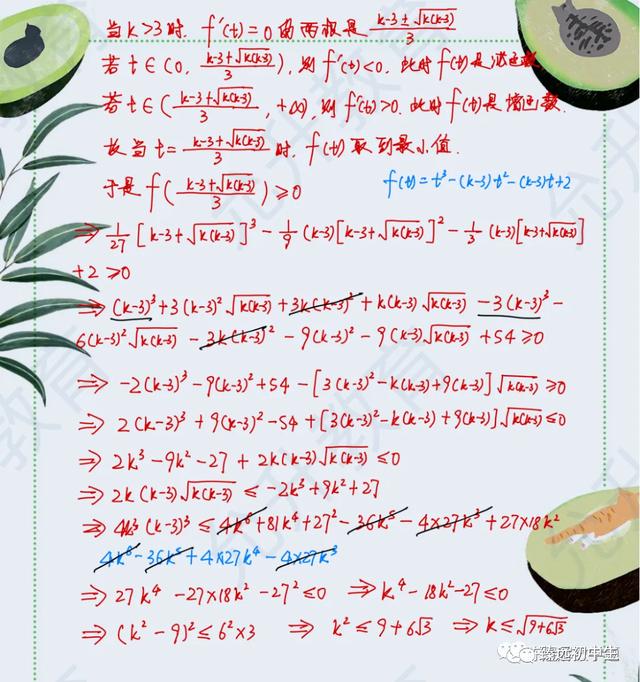 当k>3时. f'(t)=0的两根是 (k-3±√k(k-3))/3
若t∈(0, (k-3+√k(k-3))/3), 则f'(t)<0. 此时f(t)是减函数
若t∈((k-3+√k(k-3))/3, +∞), 则f'(t)>0. 此时f(t)是增函数.
故当t=(k-3+√k(k-3))/3时, f(t)取到最小值.
于是f((k-3+√k(k-3))/3)≥0
f(t)=t³-(k-3)·t²-(k-3)t+2
⇒ 1/27[k-3+√k(k-3)]³ - 1/9(k-3)[k-3+√k(k-3)]² - 1/3(k-3)[k-3+√k(k-3)]
+2≥0
⇒ (k-3)³+3(k-3)²√k(k-3)+3k(k-3)²+k(k-3)√k(k-3) -3(k-3)³-
6(k-3)²√k(k-3) -3k(k-3)² -9(k-3)² -9(k-3)√k(k-3) +54≥0
⇒ -2(k-3)³-9(k-3)²+54-[3(k-3)²-k(k-3)+9(k-3)]√k(k-3)≥0
⇒ 2(k-3)³+9(k-3)²-54+[3(k-3)²-k(k-3)+9(k-3)]√k(k-3)≤0
⇒ 2k³-9k²-27+2k(k-3)√k(k-3)≤0
⇒ 2k(k-3)√k(k-3)≤-2k³+9k²+27
⇒ 4k³(k-3)³≤4k⁶+81k⁴+27²-36k⁵-4×27k³+27×18k²
4k⁶-36k⁵+4×27k⁴-4×27k³
⇒ 27k⁴-27×18k²-27²≤0 ⇒ k⁴-18k²-27≤0
⇒ (k²-9)²≤6²×3 ⇒ k²≤9+6√3 ⇒ k≤√9+6√3
臻远初中生